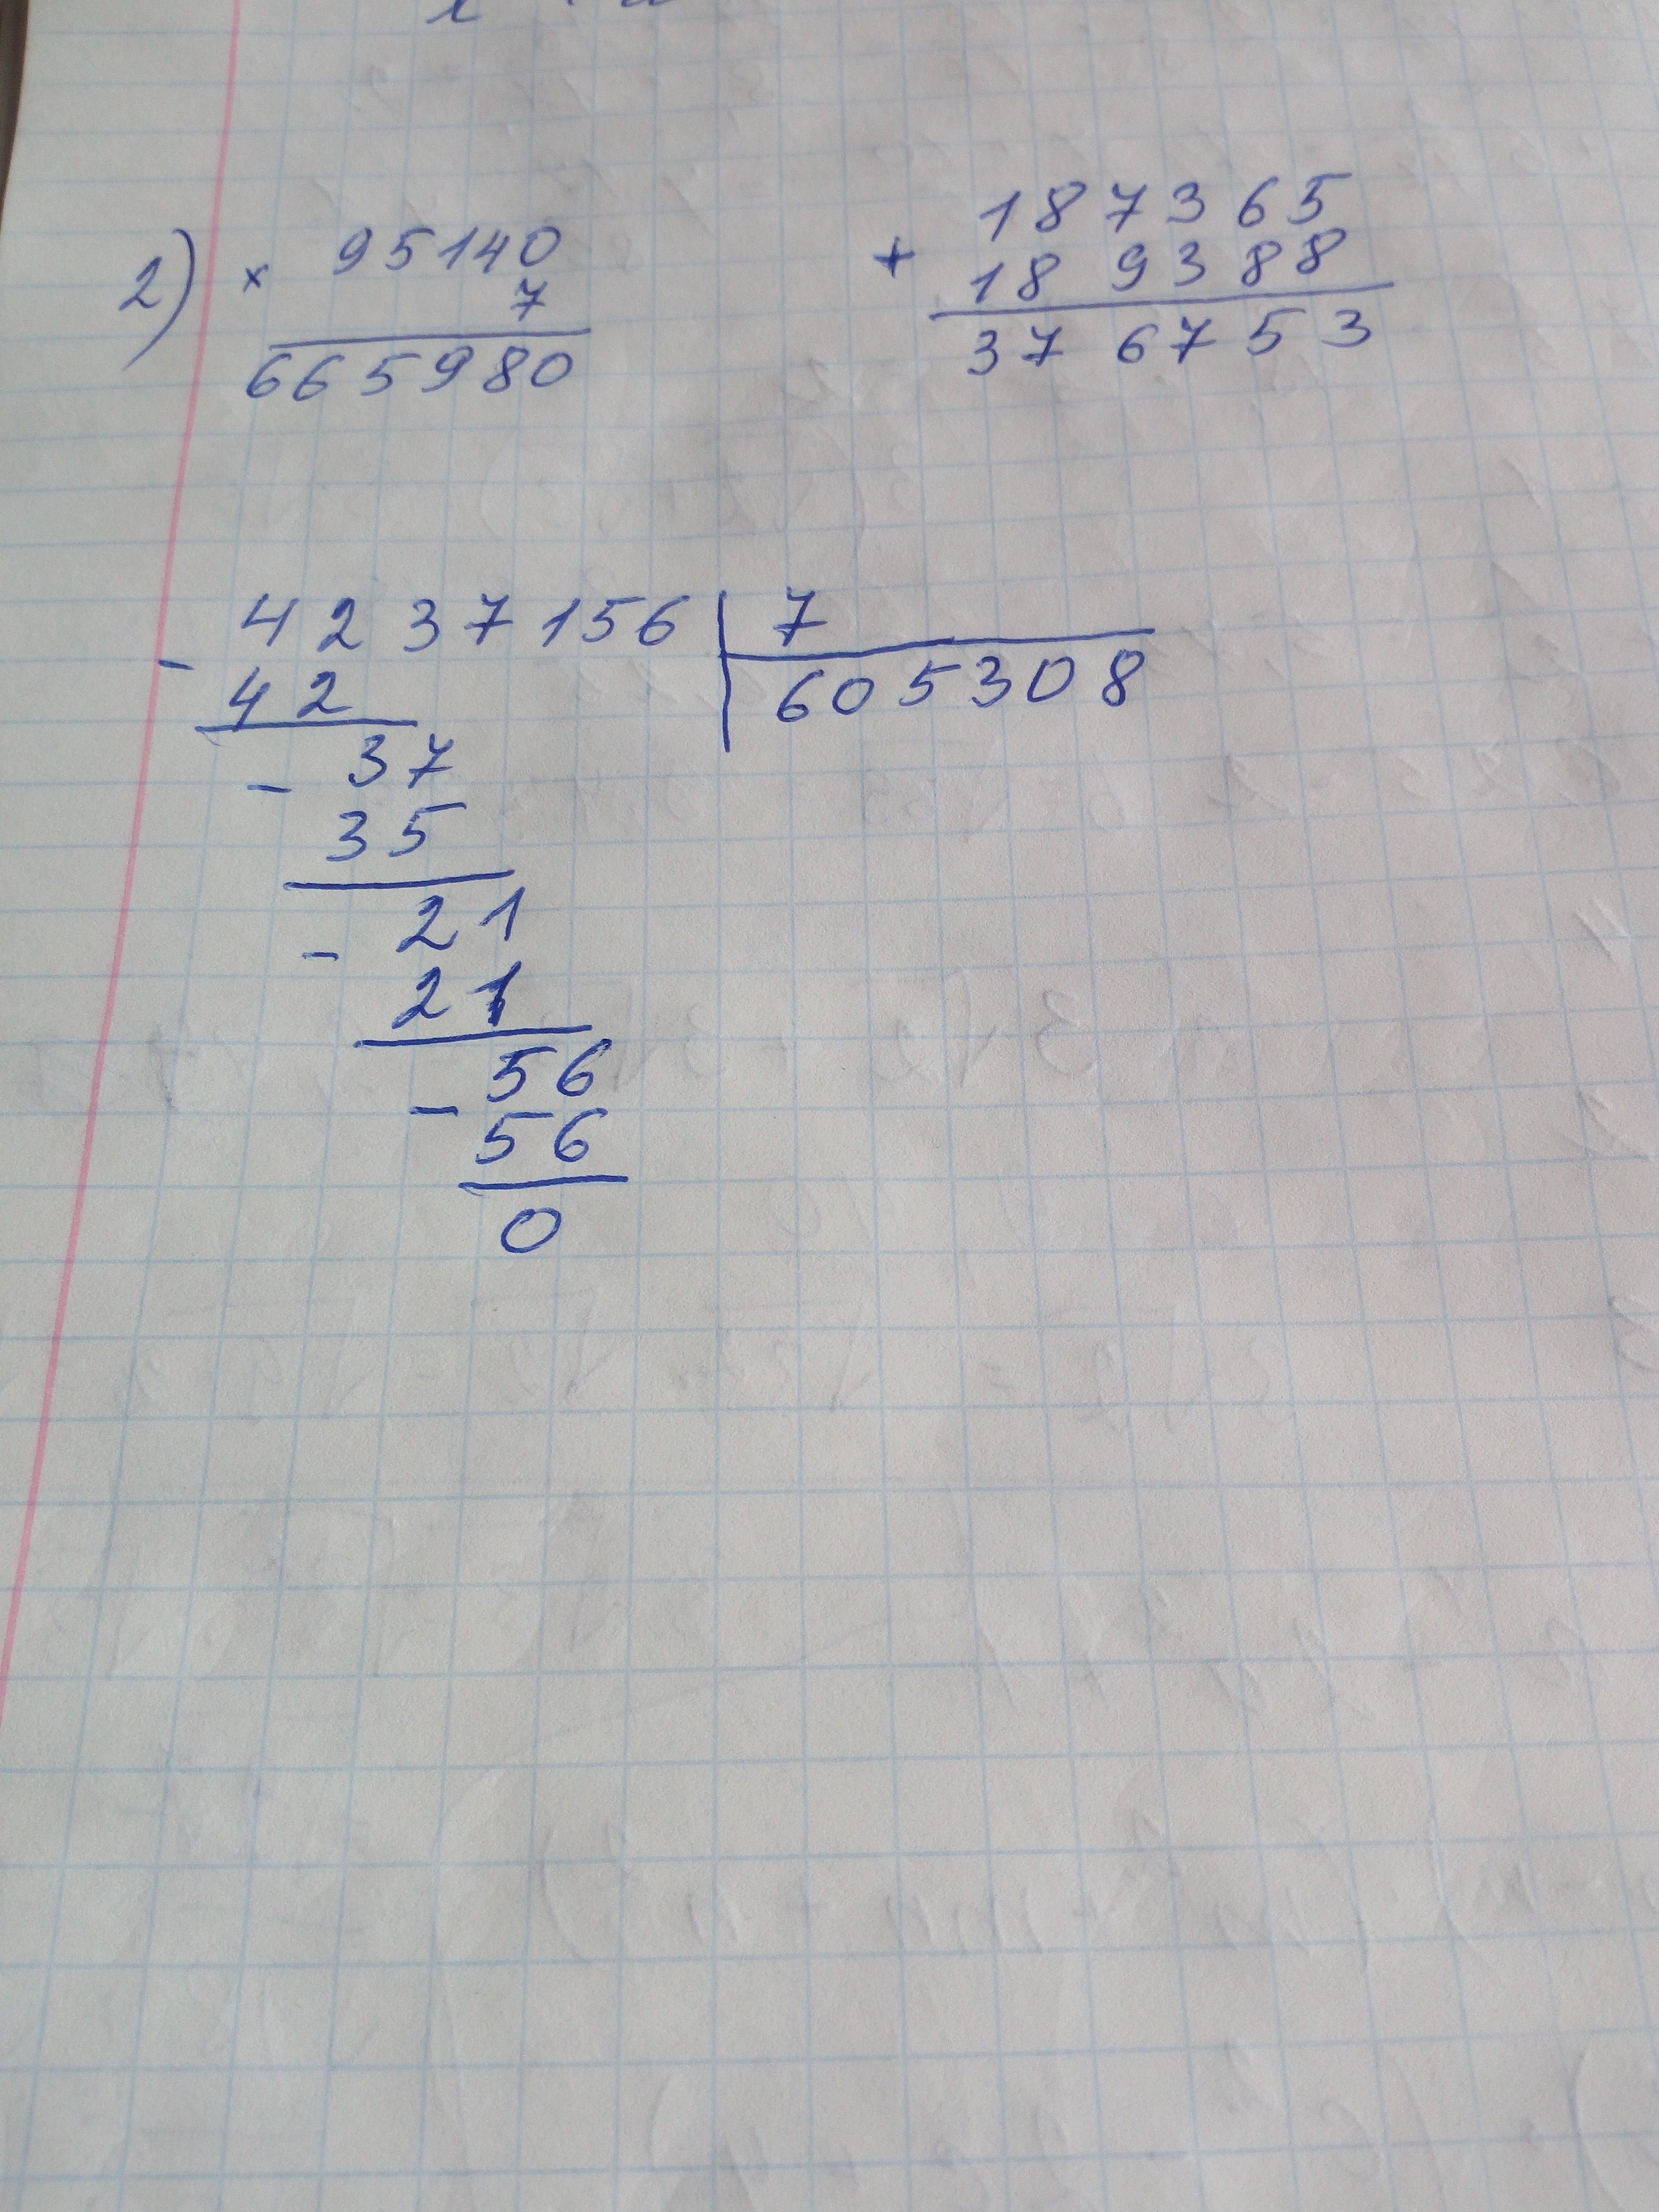 2) × 95140
7
665980
+ 187365
189388
376753
- 4237156 | 7
42 | 605308
- 37
35
- 21
21
- 56
56
0